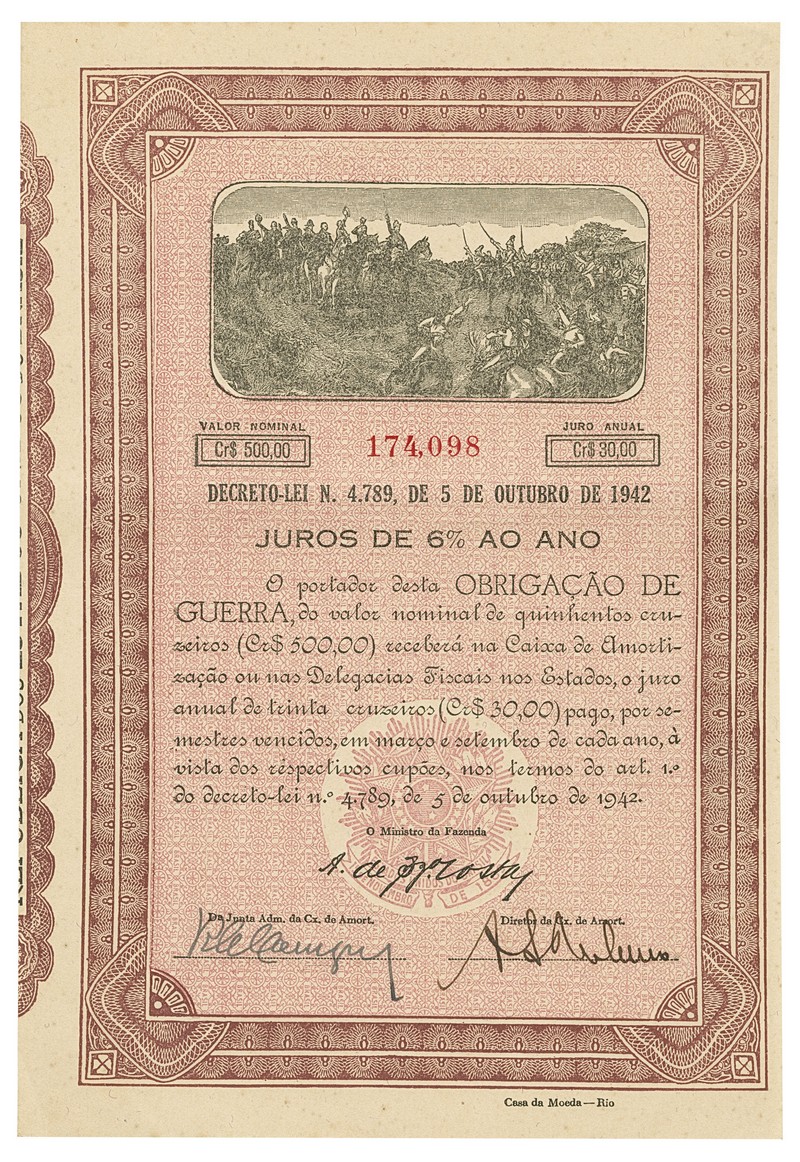 VALOR NOMINAL
Cr$ 500,00
174,098
JURO ANUAL
Cr$ 30,00
DECRETO-LEI N. 4.789, DE 5 DE OUTUBRO DE 1942
JUROS DE 6% AO ANO
O portador desta OBRIGAÇÃO DE
GUERRA, do valor nominal de quinhentos cru-
zeiros (Cr$ 500,00) receberá na Caixa de Amorti-
zação ou nas Delegacias Fiscais nos Estados, o juro
anual de trinta cruzeiros (Cr$ 30,00) pago, por se-
mestres vencidos, em março e setembro de cada ano, à
vista dos réspectivos cupões, nos termos do art. 1.º
do decreto-lei n.º 4.789, de 5 de outubro de 1942.
O Ministro da Fazenda
A. de Costa
Da Junta Adm. da Cx. de Amort.
Diretor da Cx. de Amort.
DE
Casa da Moeda — Rio